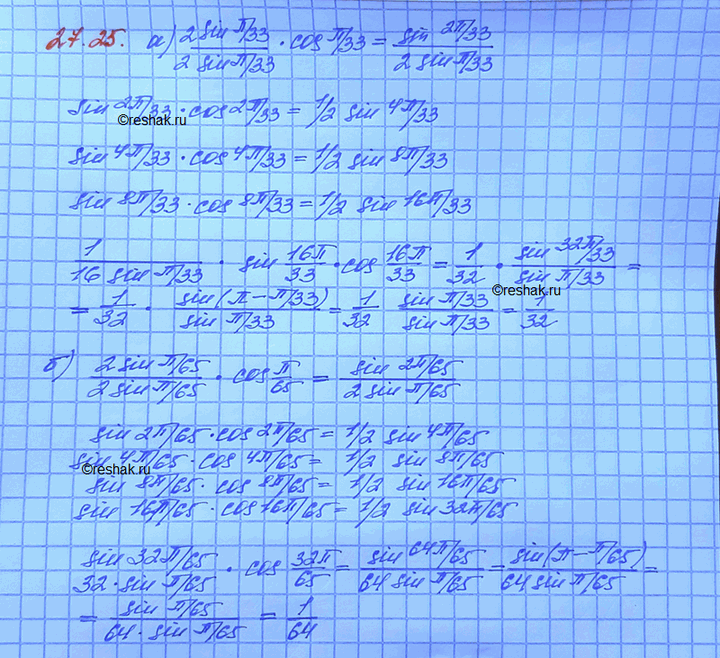 27.25. а) 2 sin π/33 / 2 sin π/33 · cos π/33 = sin 2π/33 / 2 sin π/33
sin 2π/33 · cos 2π/33 = 1/2 sin 4π/33
©reshak.ru
sin 4π/33 · cos 4π/33 = 1/2 sin 8π/33
sin 8π/33 · cos 8π/33 = 1/2 sin 16π/33
1 / 16 sin π/33 · sin 16π/33 · cos 16π/33 = 1/32 · sin 32π/33 / sin π/33 =
©reshak.ru
= 1/32 · sin(π - π/33) / sin π/33 = 1/32 sin π/33 / sin π/33 = 1/32
б) 2 sin π/65 / 2 sin π/65 · cos π/65 = sin 2π/65 / 2 sin π/65
sin 2π/65 · cos 2π/65 = 1/2 sin 4π/65
sin 4π/65 · cos 4π/65 = 1/2 sin 8π/65
©reshak.ru
sin 8π/65 · cos 8π/65 = 1/2 sin 16π/65
sin 16π/65 · cos 16π/65 = 1/2 sin 32π/65
sin 32π/65 / 32 · sin π/65 · cos 32π/65 = sin 64π/65 / 64 sin π/65 = sin(π - π/65) / 64 sin π/65 =
= sin π/65 / 64 · sin π/65 = 1/64